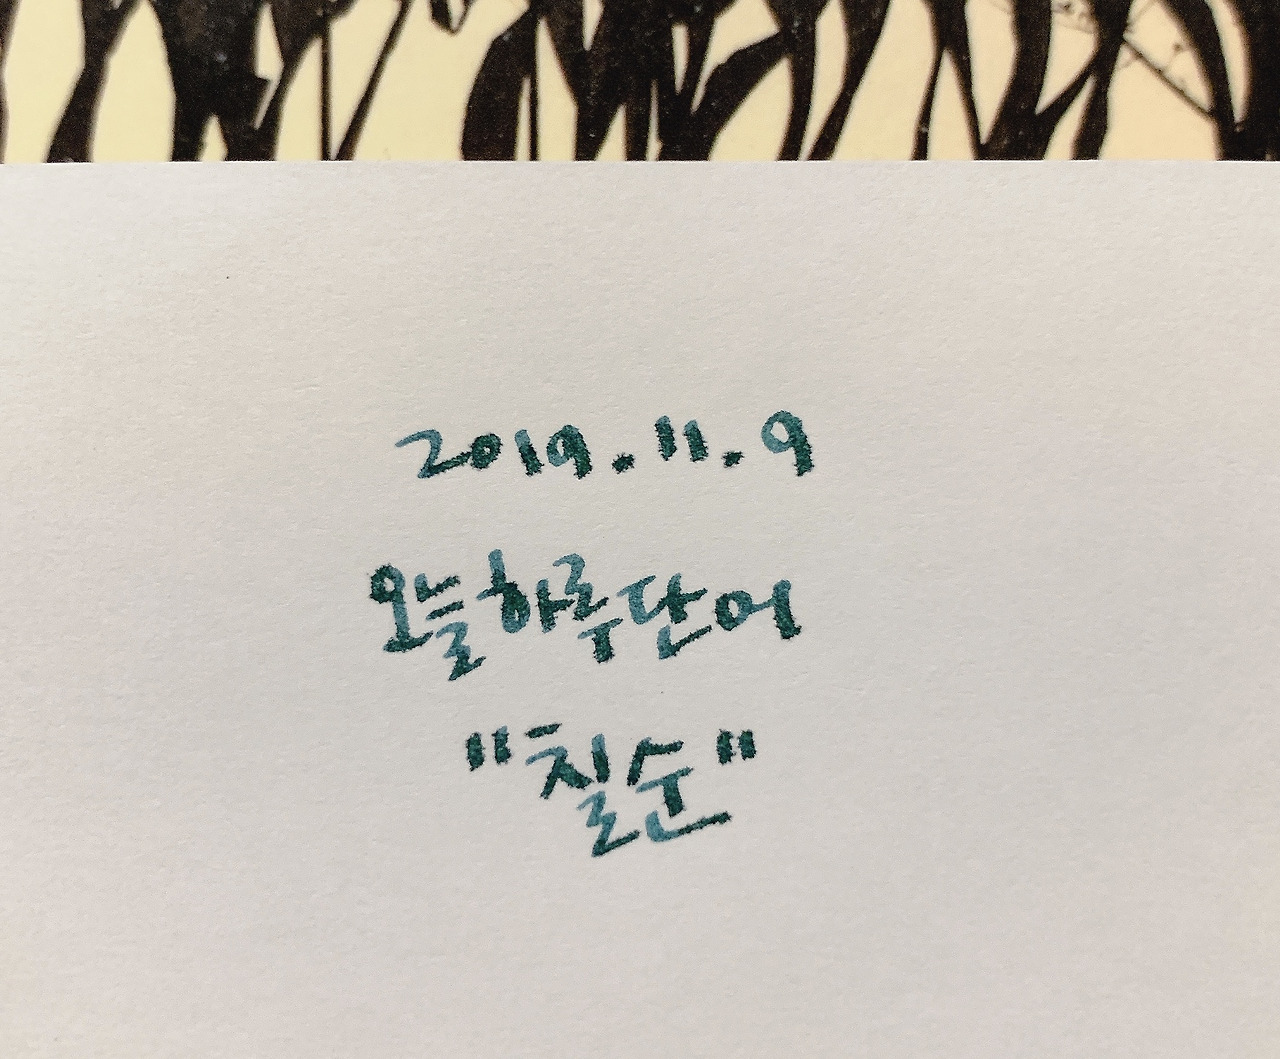 2019.11.9
오늘하루단어
"칠순"